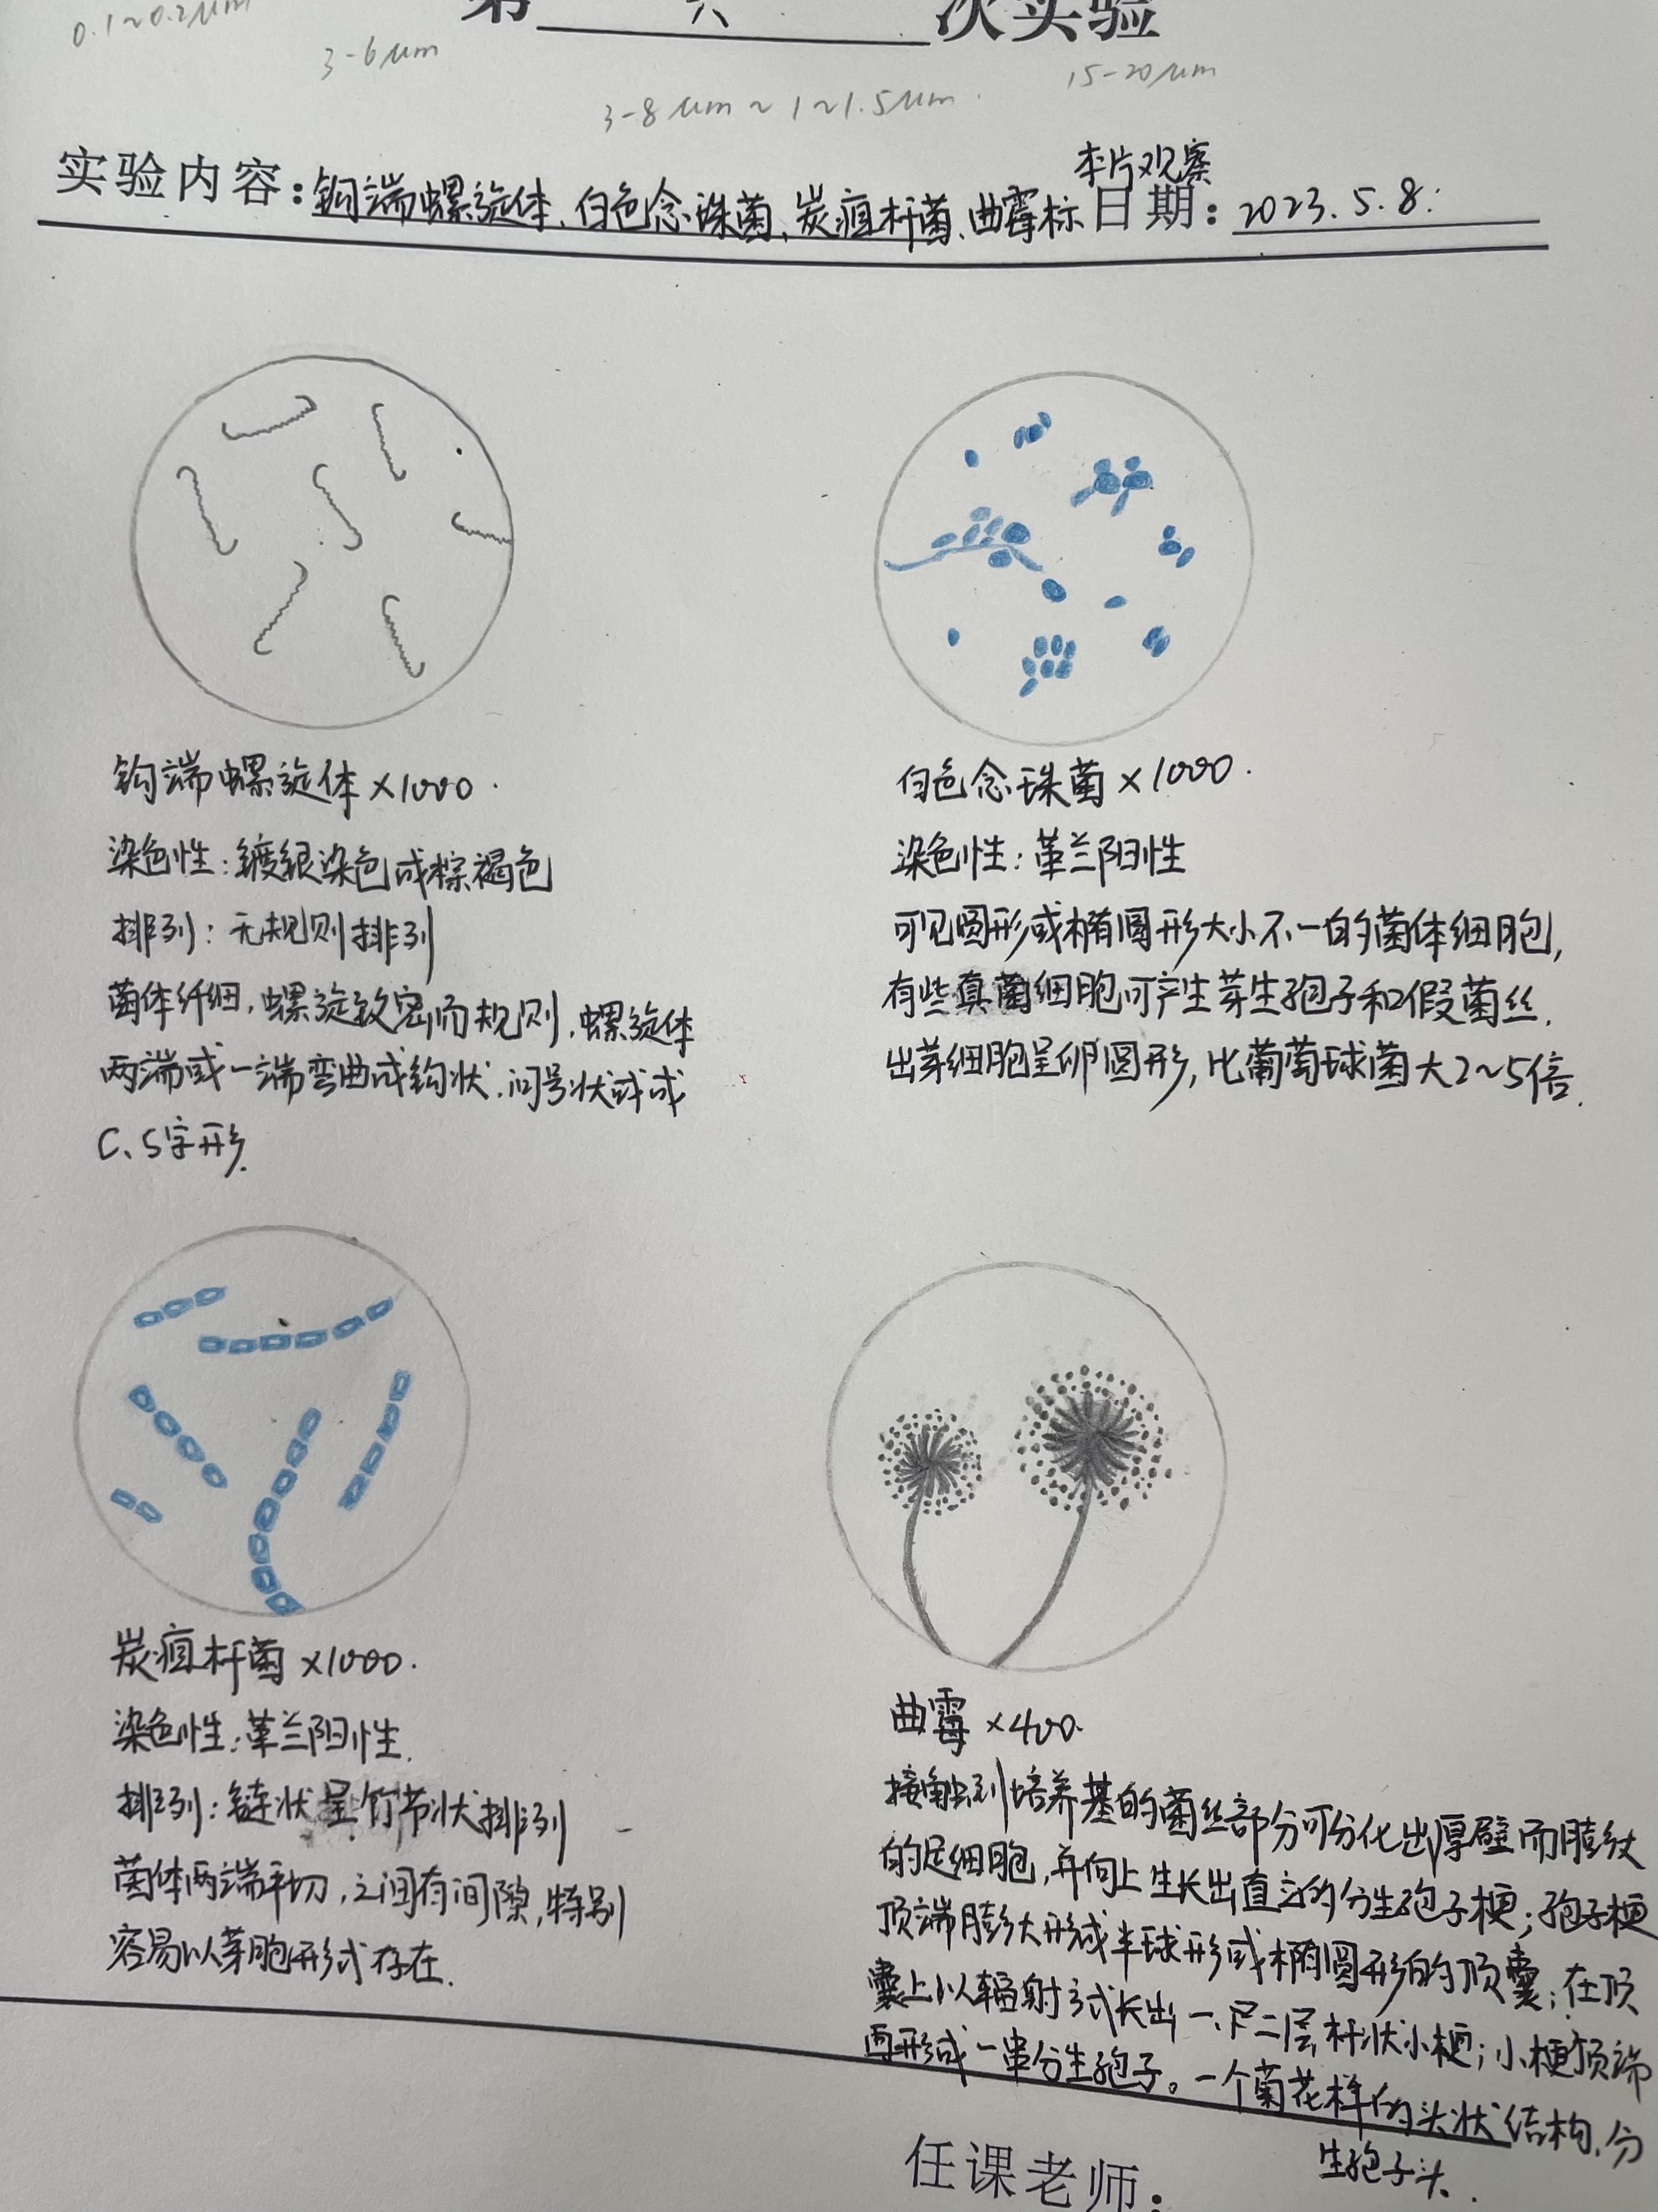 第 六 次实验
0.1~0.2μm
3-6μm
3-8μm~1~1.5μm.
15-20μm
实验内容:钩端螺旋体、白色念珠菌、炭疽杆菌、曲霉标本片观察 日期:2023.5.8.
钩端螺旋体×1000.
染色性:镀银染色成棕褐色
排列:无规则排列
菌体纤细,螺旋致密而规则,螺旋体
两端或一端弯曲成钩状,问号状或成
C、S字形.
白色念珠菌×1000.
染色性:革兰阳性
可见圆形或椭圆形大小不一的菌体细胞,
有些真菌细胞可产生芽生孢子和假菌丝.
出芽细胞呈卵圆形,比葡萄球菌大2~5倍.
炭疽杆菌×1000.
染色性:革兰阳性.
排列:链状呈竹节状排列
菌体两端平切,之间有间隙,特别
容易以芽胞形式存在.
曲霉×400.
接触到培养基的菌丝部分可分化出厚壁而膨大
的足细胞,并向上生长出直立的分生孢子梗;孢子梗
顶端膨大形成半球形或椭圆形的顶囊;在顶
囊上以辐射方式长出一、二层杆状小梗;小梗顶端
再形成一串分生孢子。一个菊花样的头状结构,分
生孢子头.
任课老师: